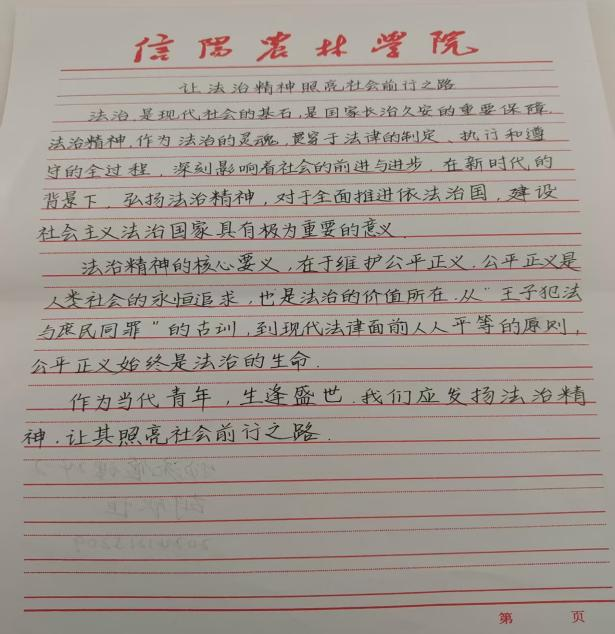 信阳农林学院
让法治精神照亮社会前行之路
法治,是现代社会的基石,是国家长治久安的重要保障.
法治精神,作为法治的灵魂,贯穿于法律的制定、执行和遵
守的全过程,深刻影响着社会的前进与进步.在新时代的
背景下,弘扬法治精神,对于全面推进依法治国,建设
社会主义法治国家具有极为重要的意义.
法治精神的核心要义,在于维护公平正义.公平正义是
人类社会的永恒追求,也是法治的价值所在.从"王子犯法
与庶民同罪"的古训,到现代法律面前人人平等的原则,
公平正义始终是法治的生命.
作为当代青年,生逢盛世.我们应发扬法治精
神.让其照亮社会前行之路.
第 页